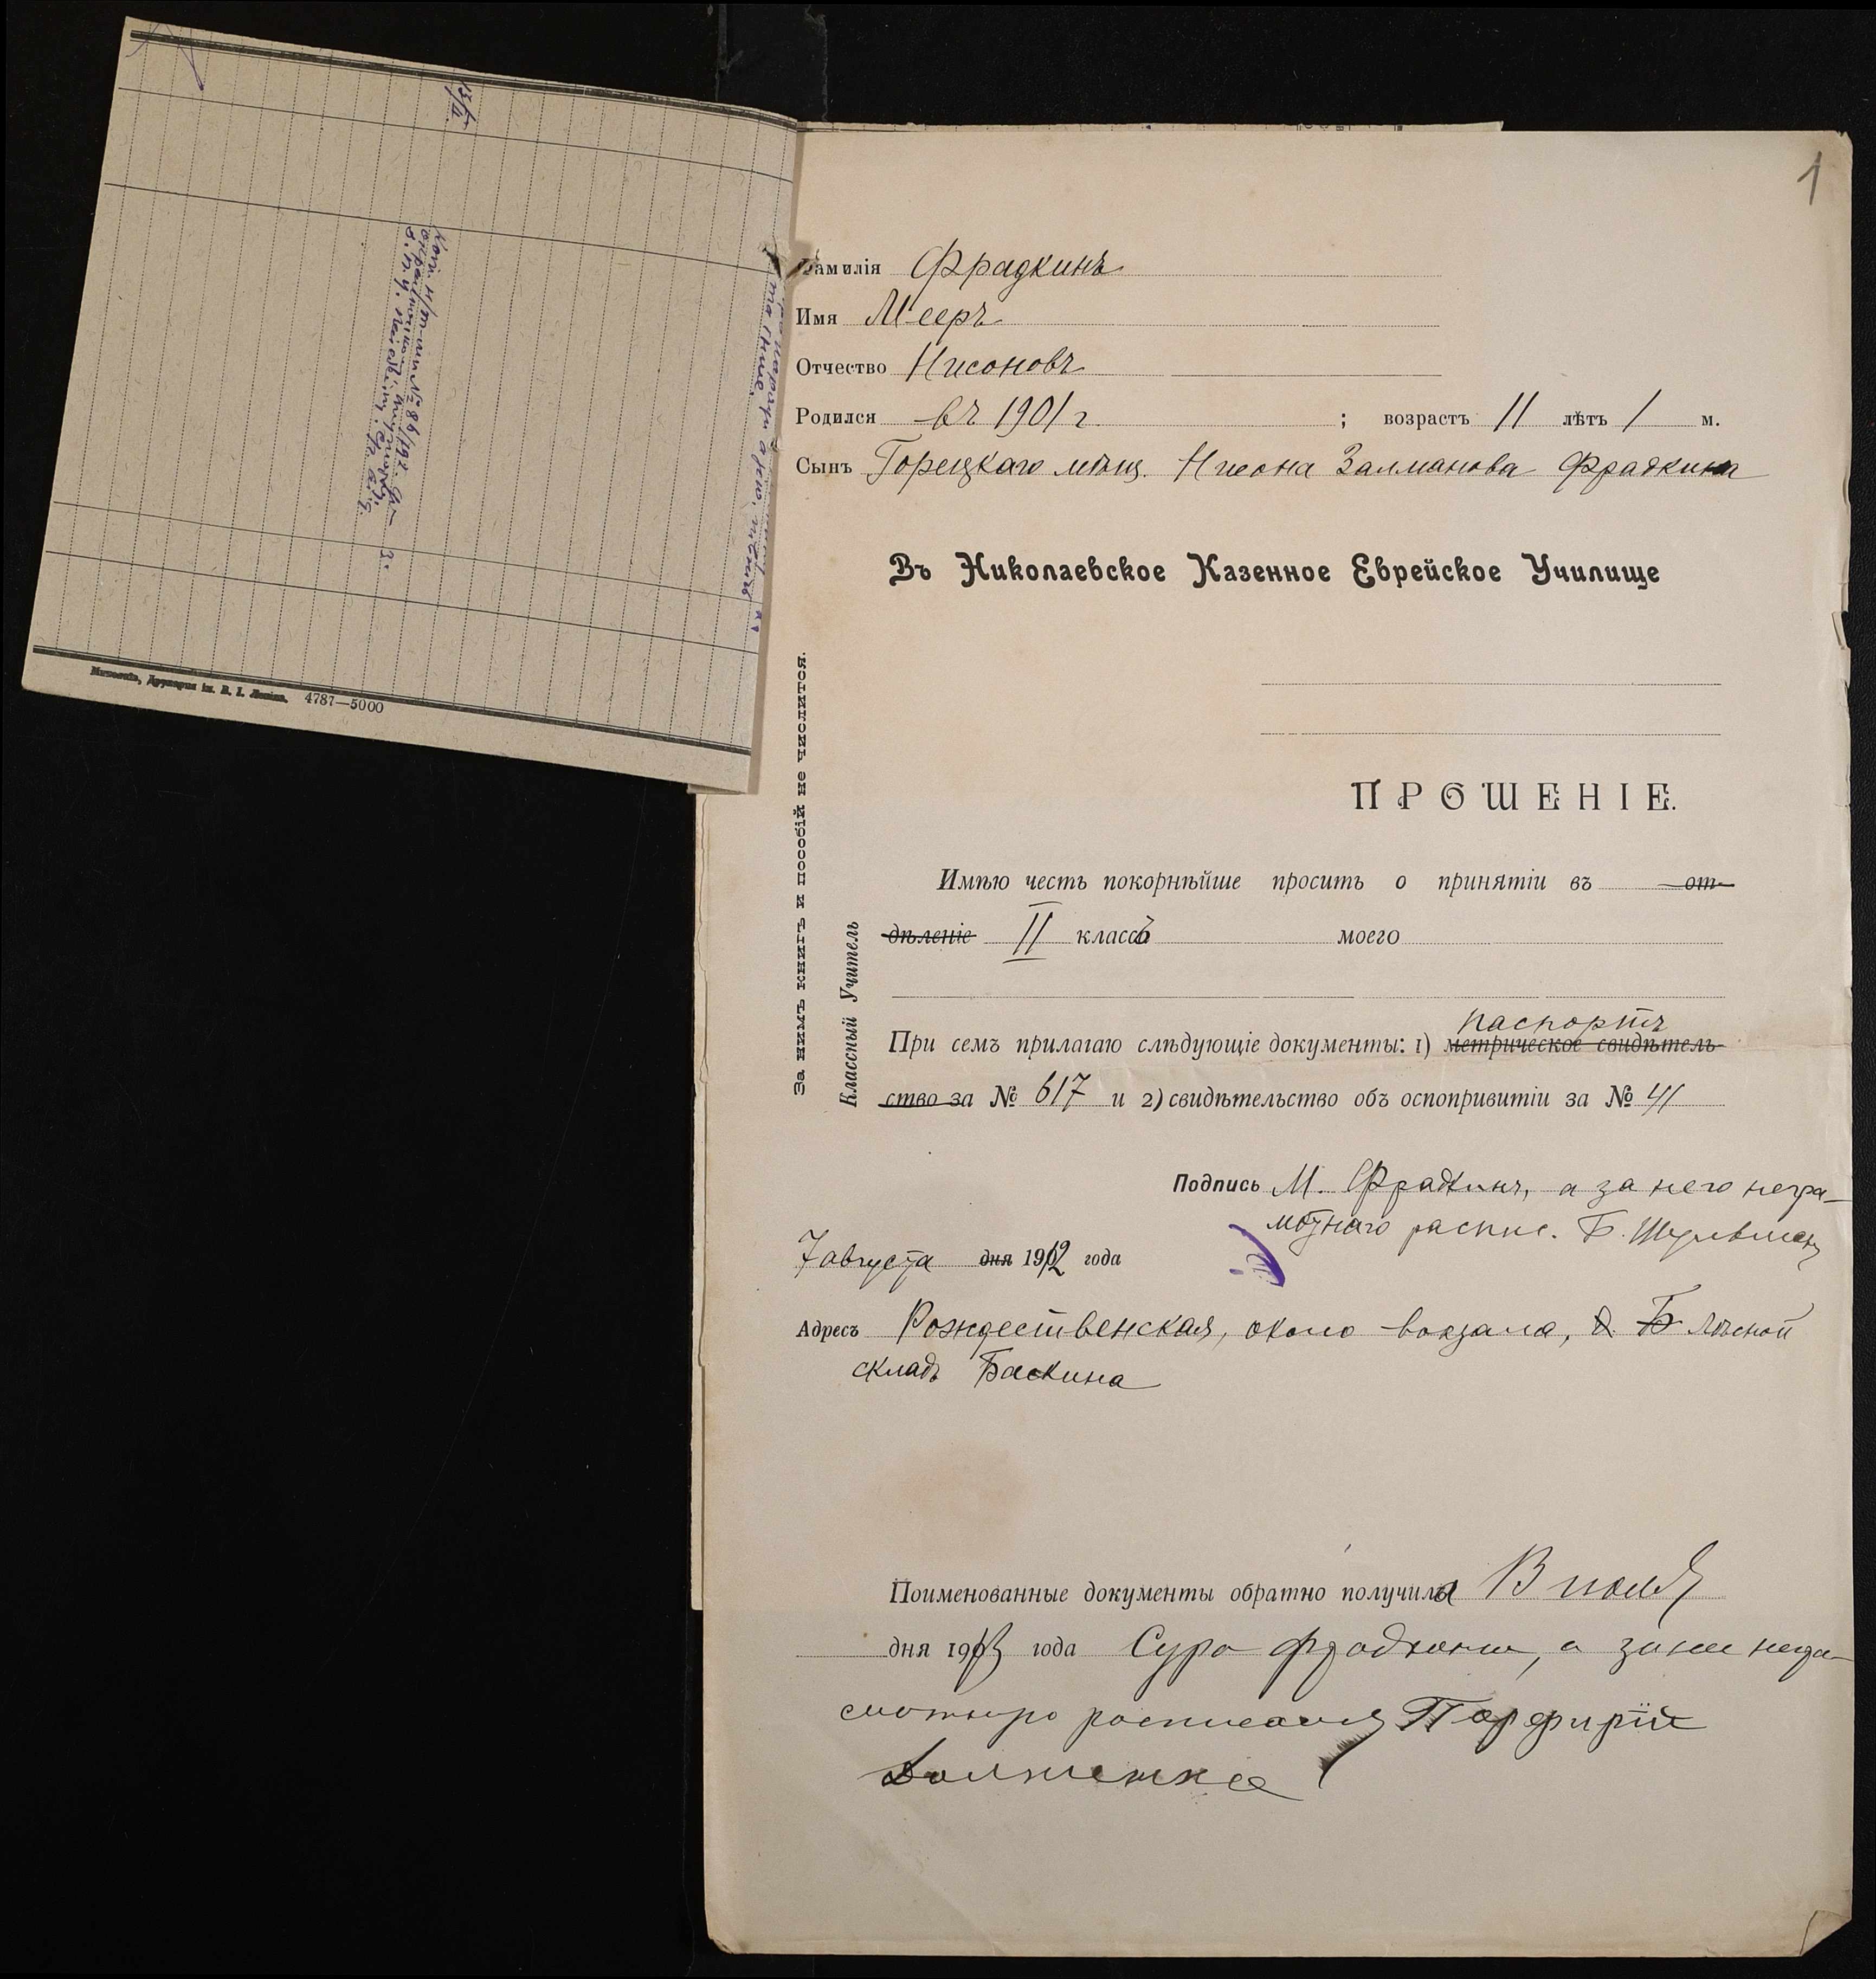 1
Фамилія Фрадкинъ
Имя Мееръ
Отчество Нисоновъ
Родился въ 1901 г. ; возрастъ 11 лѣтъ 1 м.
Сынъ Горецкаго мѣщ. Нисона Залманова Фрадкина
Въ Николаевское Казенное Еврейское Училище
ПРОШЕНІЕ.
Имѣю честь покорнѣйше просить о принятіи въ от-
дѣленіе II классъ моего
При семъ прилагаю слѣдующіе документы: 1) метрическое свидѣтель-
паспортъ
ство за № 617 и 2) свидѣтельство объ оспопривитіи за № 41
Подпись М. Фрадкинъ, а за него негра-
мотнаго распис. Б.
7 августа дня 1912 года
Адресъ Рождественская, около вокзала, д. Б Лѣсной
складъ Баскина
Поименованные документы обратно получила В
дня 1913 года Сура Фрадкина, а за нее
Порфирій
За нимъ книгъ и пособій не числится.
Классный Учитель
13/II
Миколаїв, Друкарня ім. В. І. Леніна. 4787—5000